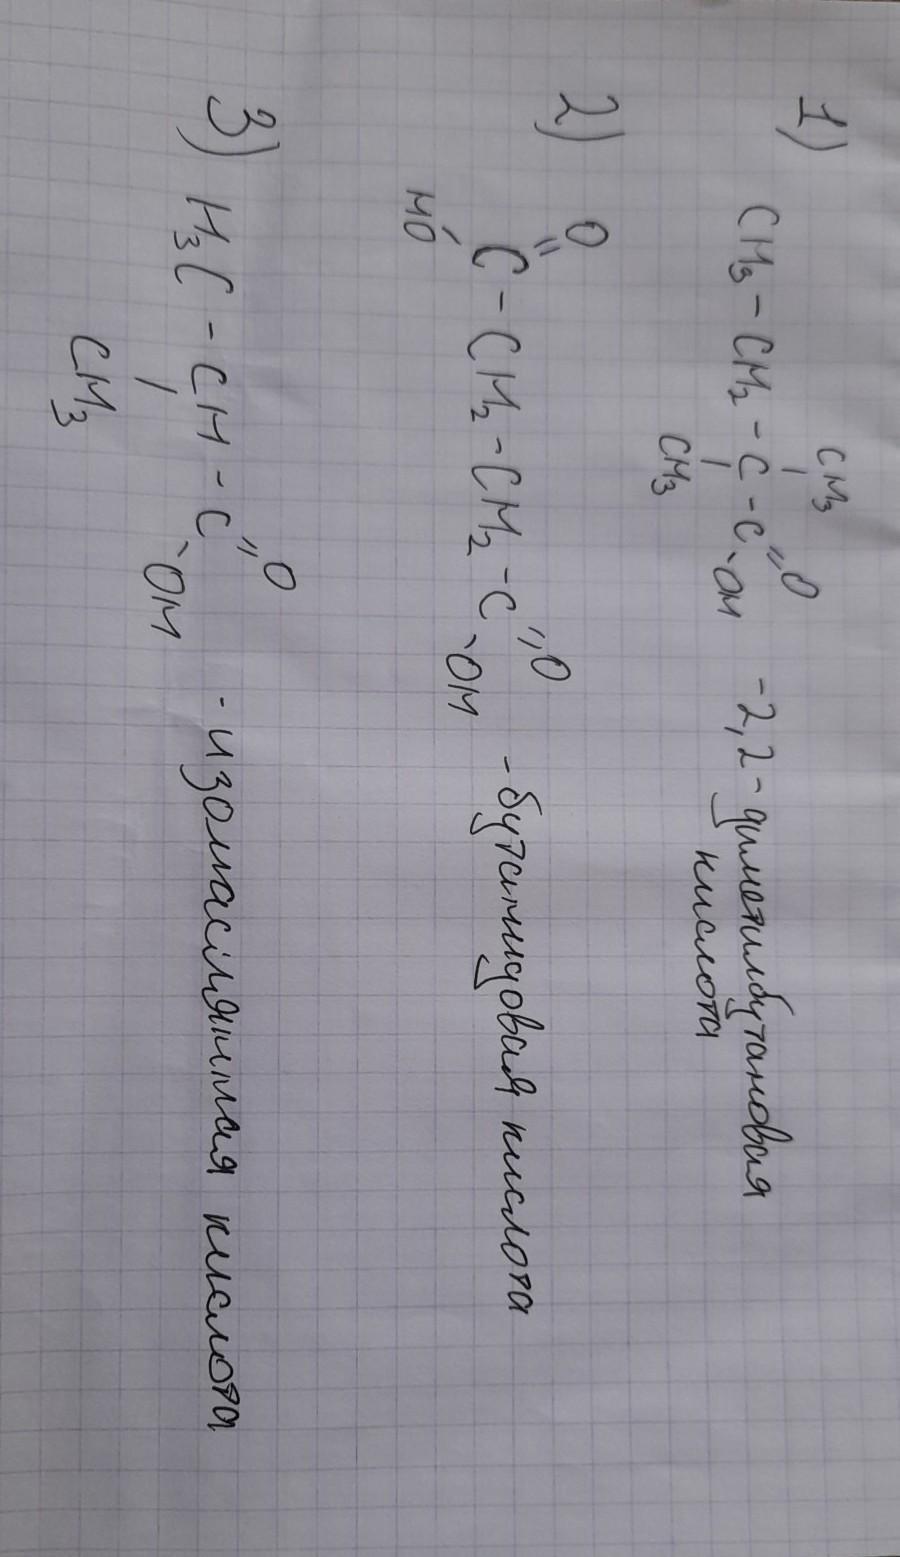 1) CH₃ - CH₂ - C - C = O
CH₃
CH₃
OH
- 2,2 - диметилбутановая
кислота
2) O
HO
C - CH₂ - CH₂ - C = O
OH
- бутандиовая кислота
3) H₃C - CH - C = O
CH₃
OH
- изомасляная кислота